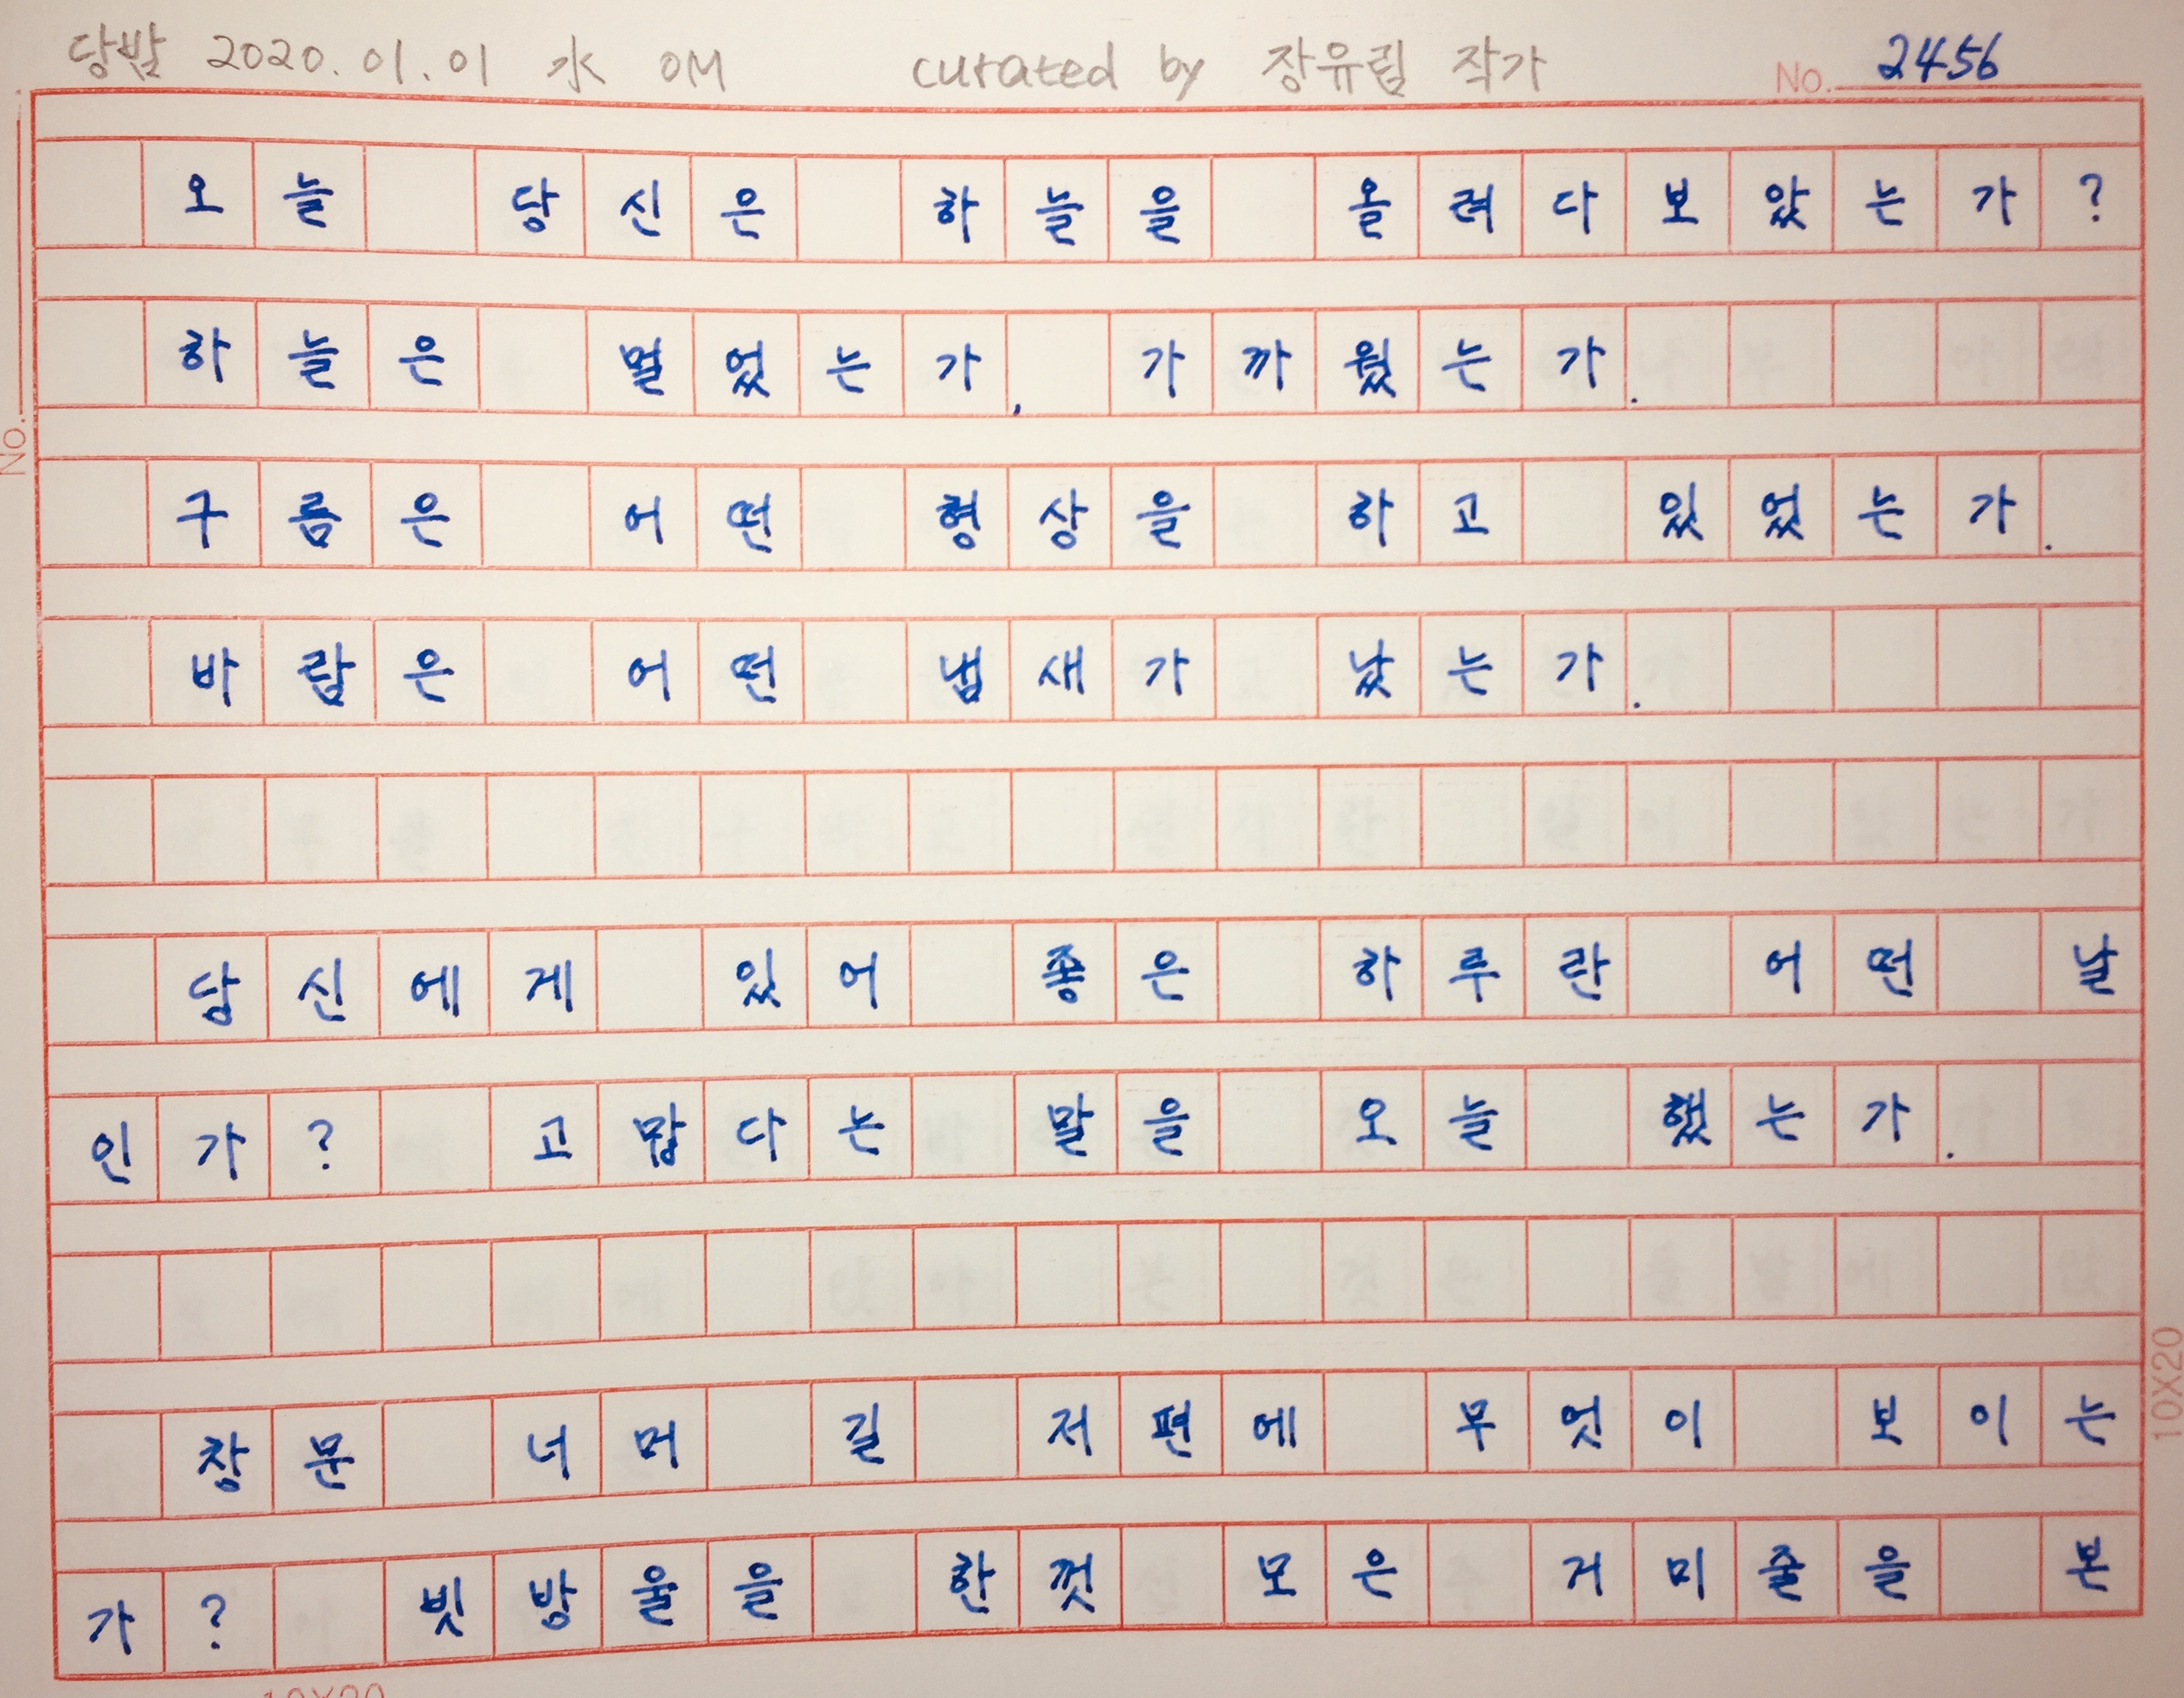 당밤 2020.01.01 水 OM curated by 장유림 작가 No. 2456
오늘 당신은 하늘을 올려다보았는가?
하늘은 멀었는가, 가까웠는가.
구름은 어떤 형상을 하고 있었는가.
바람은 어떤 냄새가 났는가.
당신에게 있어 좋은 하루란 어떤 날
인가? 고맙다는 말을 오늘 했는가.
창문 너머 길 저편에 무엇이 보이는
가? 빗방울을 한껏 모은 거미줄을 본
No.
10X20
10X20